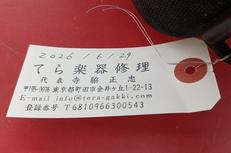 2026/6/29
てら楽器修理
代表 寺脇 正忠
〒195-0076 東京都町田市金井ヶ丘1-22-13
E-mail info@tera-gakki.com
登録番号 T6810966300543